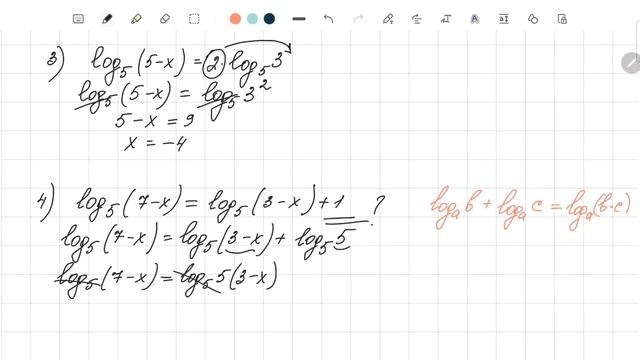 3) log₅(5-x) = 2·log₅3
log₅(5-x) = log₅3²
5-x = 9
x = -4
4) log₅(7-x) = log₅(3-x)+1 ?
log₅(7-x) = log₅(3-x) + log₅5
log₅(7-x) = log₅5(3-x)
logₐb + logₐc = logₐ(b·c)